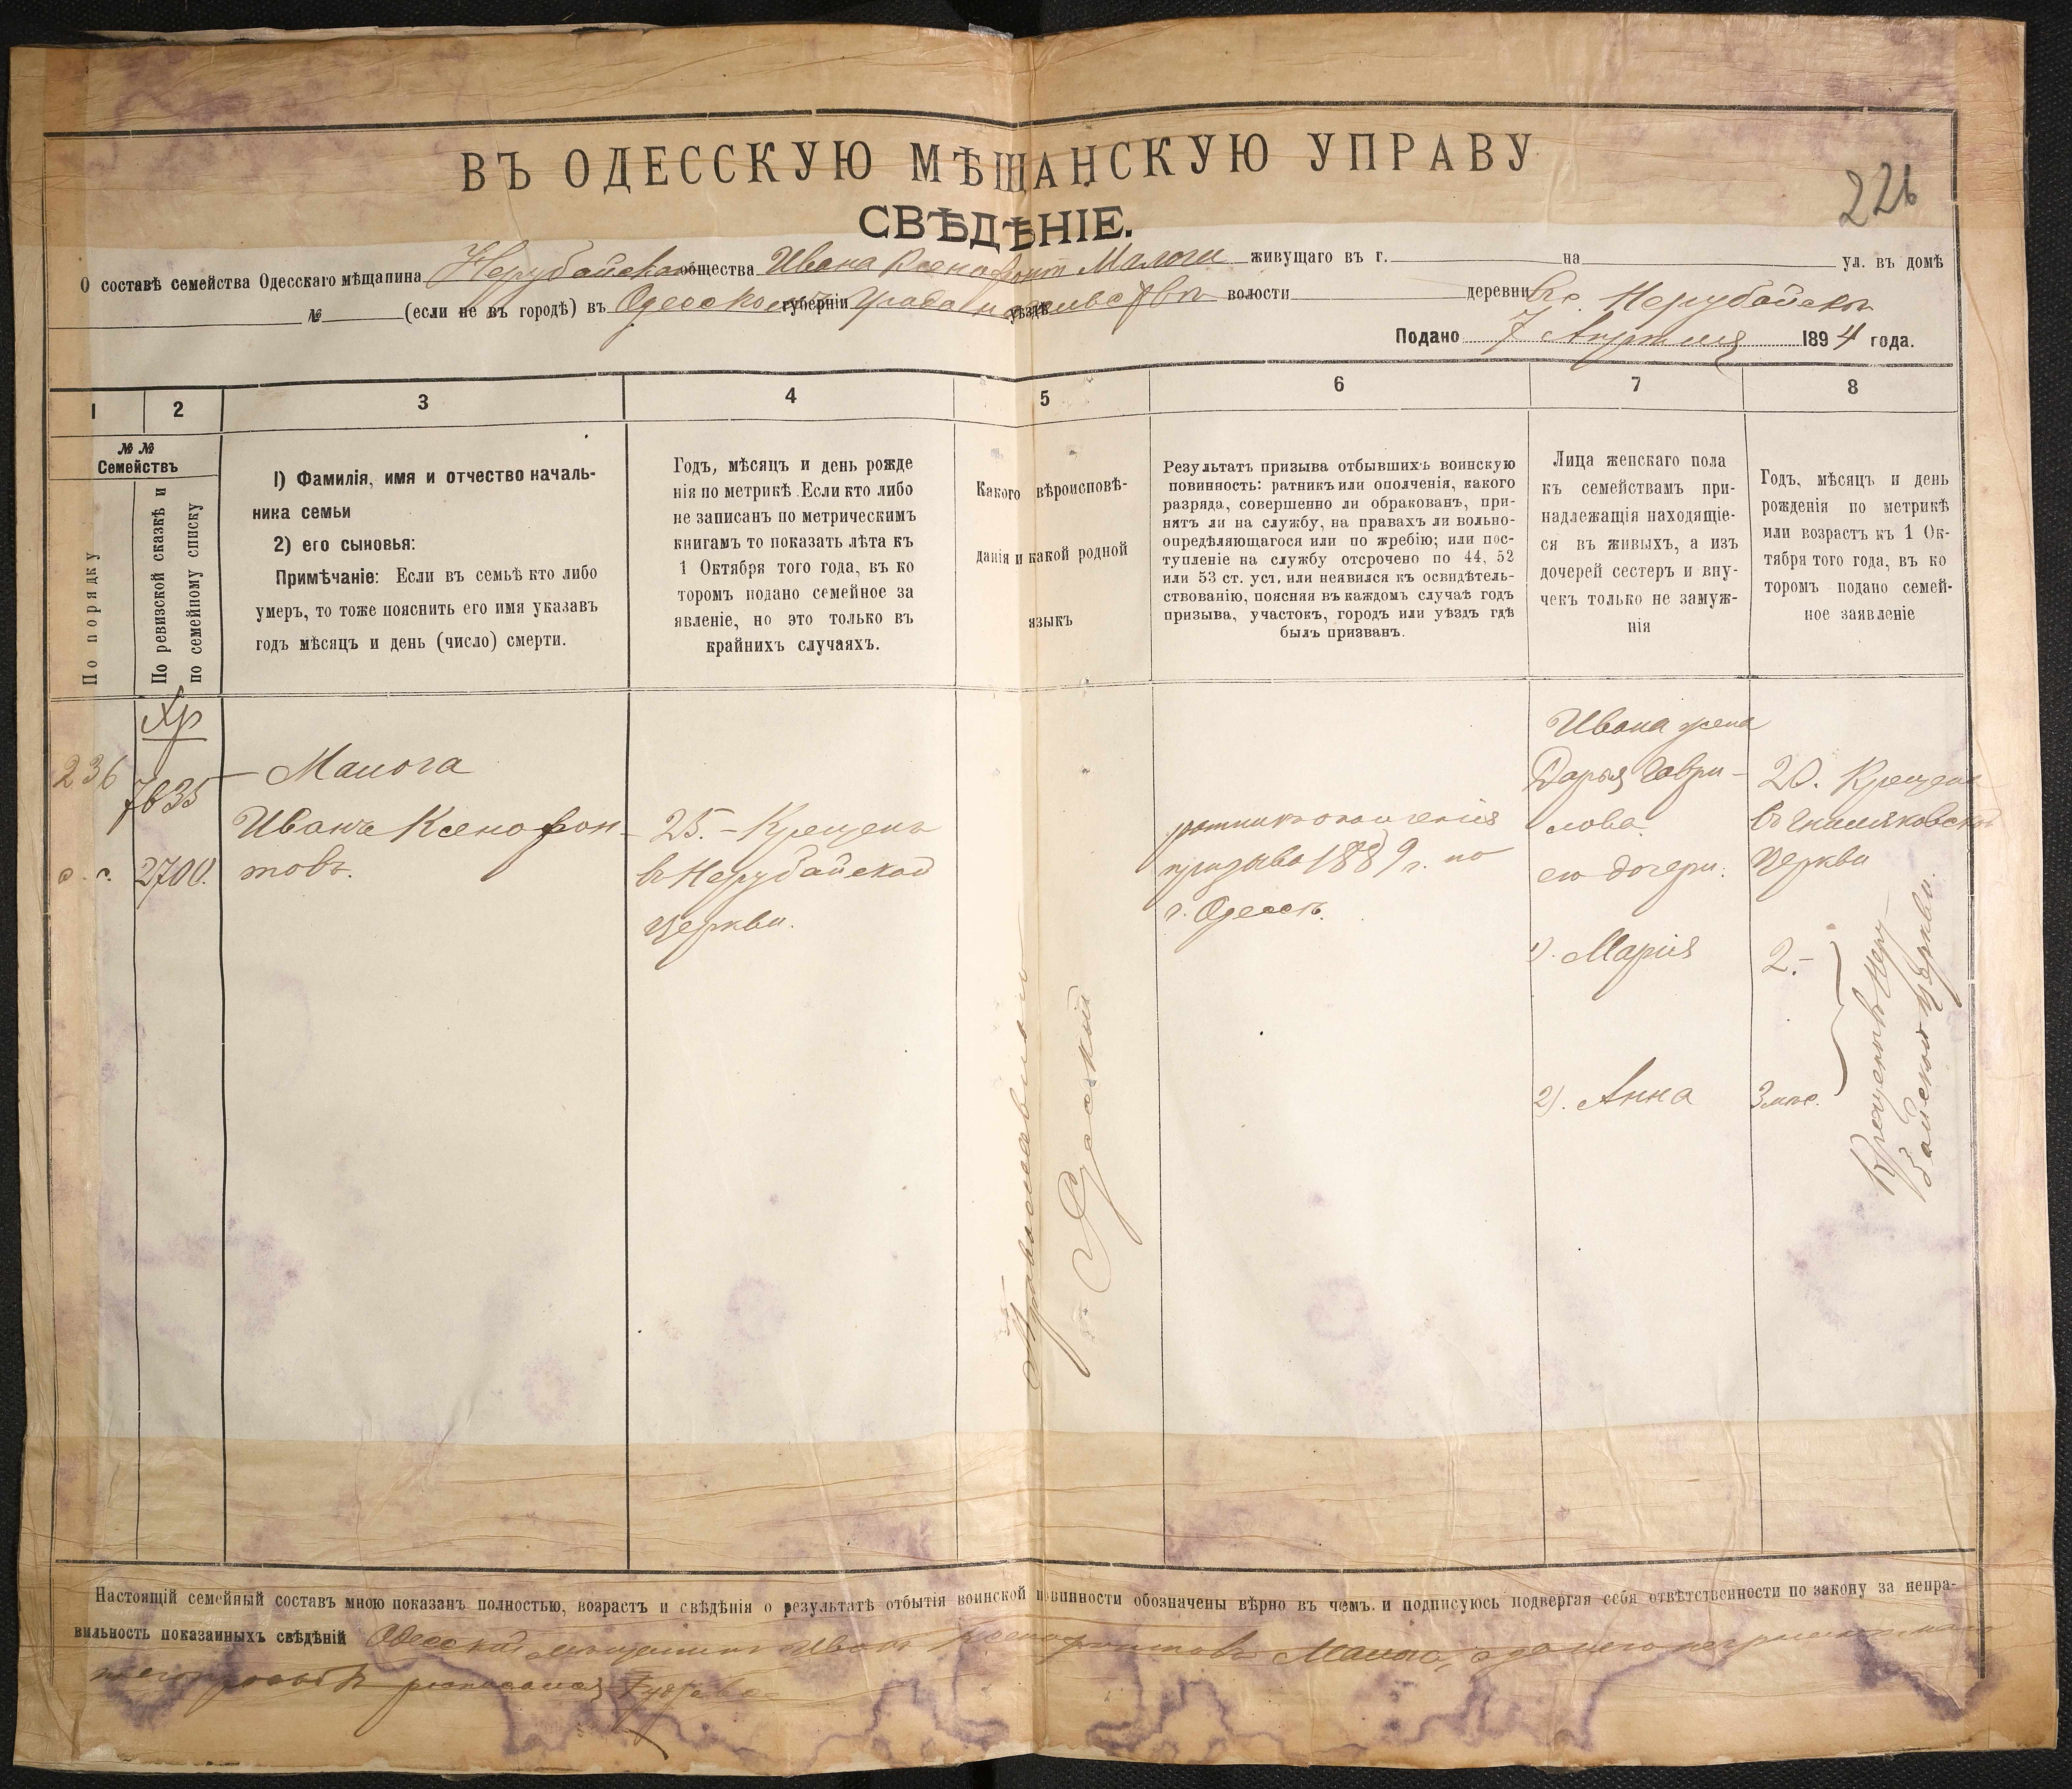 ВЪ ОДЕССКУЮ МѢЩАНСКУЮ УПРАВУ
226
СВѢДѢНІЕ.
О составѣ семейства Одесскаго мѣщанина Нерубайскаго общества Ивана Ксенофонт Малоги живущаго въ г. на ул. въ домѣ
№ (если не въ городѣ) въ Одесскомъ губерніи Градоначальствѣ уѣздѣ волости деревни Въ с. Нерубайскѣ
Подано 7 Апрѣля 1894 года.
1 2 3 4 5 6 7 8
№ №
Семействъ
По порядку
По ревизской сказкѣ и
по семейному списку
1) Фамилія, имя и отчество началь-
ника семьи
2) его сыновья:
Примѣчаніе: Если въ семьѣ кто либо
умеръ, то тоже пояснить его имя указавъ
годъ мѣсяцъ и день (число) смерти.
Годъ, мѣсяцъ и день рожде
нія по метрикѣ. Если кто либо
не записанъ по метрическимъ
книгамъ то показать лѣта къ
1 Октября того года, въ ко
торомъ подано семейное за
явленіе, но это только въ
крайнихъ случаяхъ.
Какого вѣроисповѣ-
данія и какой родной
языкъ
Результатъ призыва отбывшихъ воинскую
повинность: ратникъ или ополченія, какого
разряда, совершенно ли обракованъ, при-
нятъ ли на службу, на правахъ ли вольно-
опредѣляющагося или по жребію; или пос-
тупленіе на службу отсрочено по 44, 52
или 53 ст. уст. или неявился къ освидѣтель-
ствованію, поясняя въ каждомъ случаѣ годъ
призыва, участокъ, городъ или уѣздъ гдѣ
былъ призванъ.
Лица женскаго пола
къ семействамъ при-
надлежащія находящіе-
ся въ живыхъ, а изъ
дочерей сестеръ и вну-
чекъ только не замуж-
нія
Годъ, мѣсяцъ и день
рожденія по метрикѣ
или возрастъ къ 1 Ок-
тября того года, въ ко
торомъ подано семей-
ное заявленіе
Хр
236
7635
с. с. 2700.
Малога
Иванъ Ксенофон-
товъ.
25. - Крещенъ
въ Нерубайской
церкви.
Православный
Русскій
ратникъ ополченія
призыва 1889 г. по
г. Одессѣ.
Ивана жена
Дарья Гаври-
лова.
его дочери:
1). Марія
2). Анна
20. Крещена
въ Гниляковской
церкви
2.-
3 мѣс.
Крещены въ Неру-
байской церкви.
Настоящій семейный составъ мною показанъ полностью, возрастъ и свѣдѣнія о результатѣ отбытія воинской повинности обозначены вѣрно въ чемъ и подписуюсь подвергая себя отвѣтственности по закону за непра-
вильность показанныхъ свѣдѣній Одесскій мѣщанинъ Иванъ Ксенофонтовъ Малога, а за него неграмотнаго
по его просьбѣ росписался